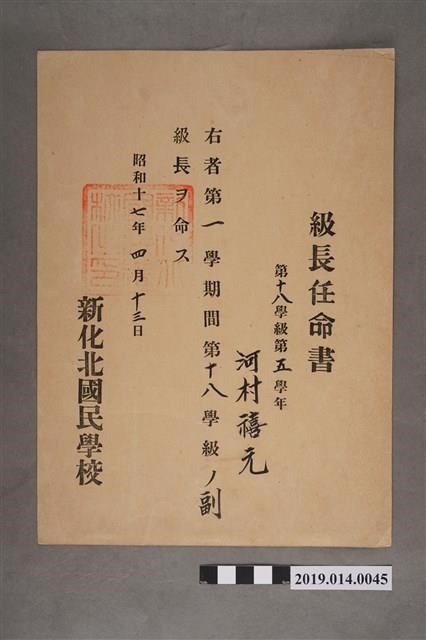 級長任命書
第十八學級第五學年
河村禧元
右者第一學期間第十八學級ノ副
級長ヲ命ス
昭和十七年四月十三日
新化北國民學校
2019.014.0045